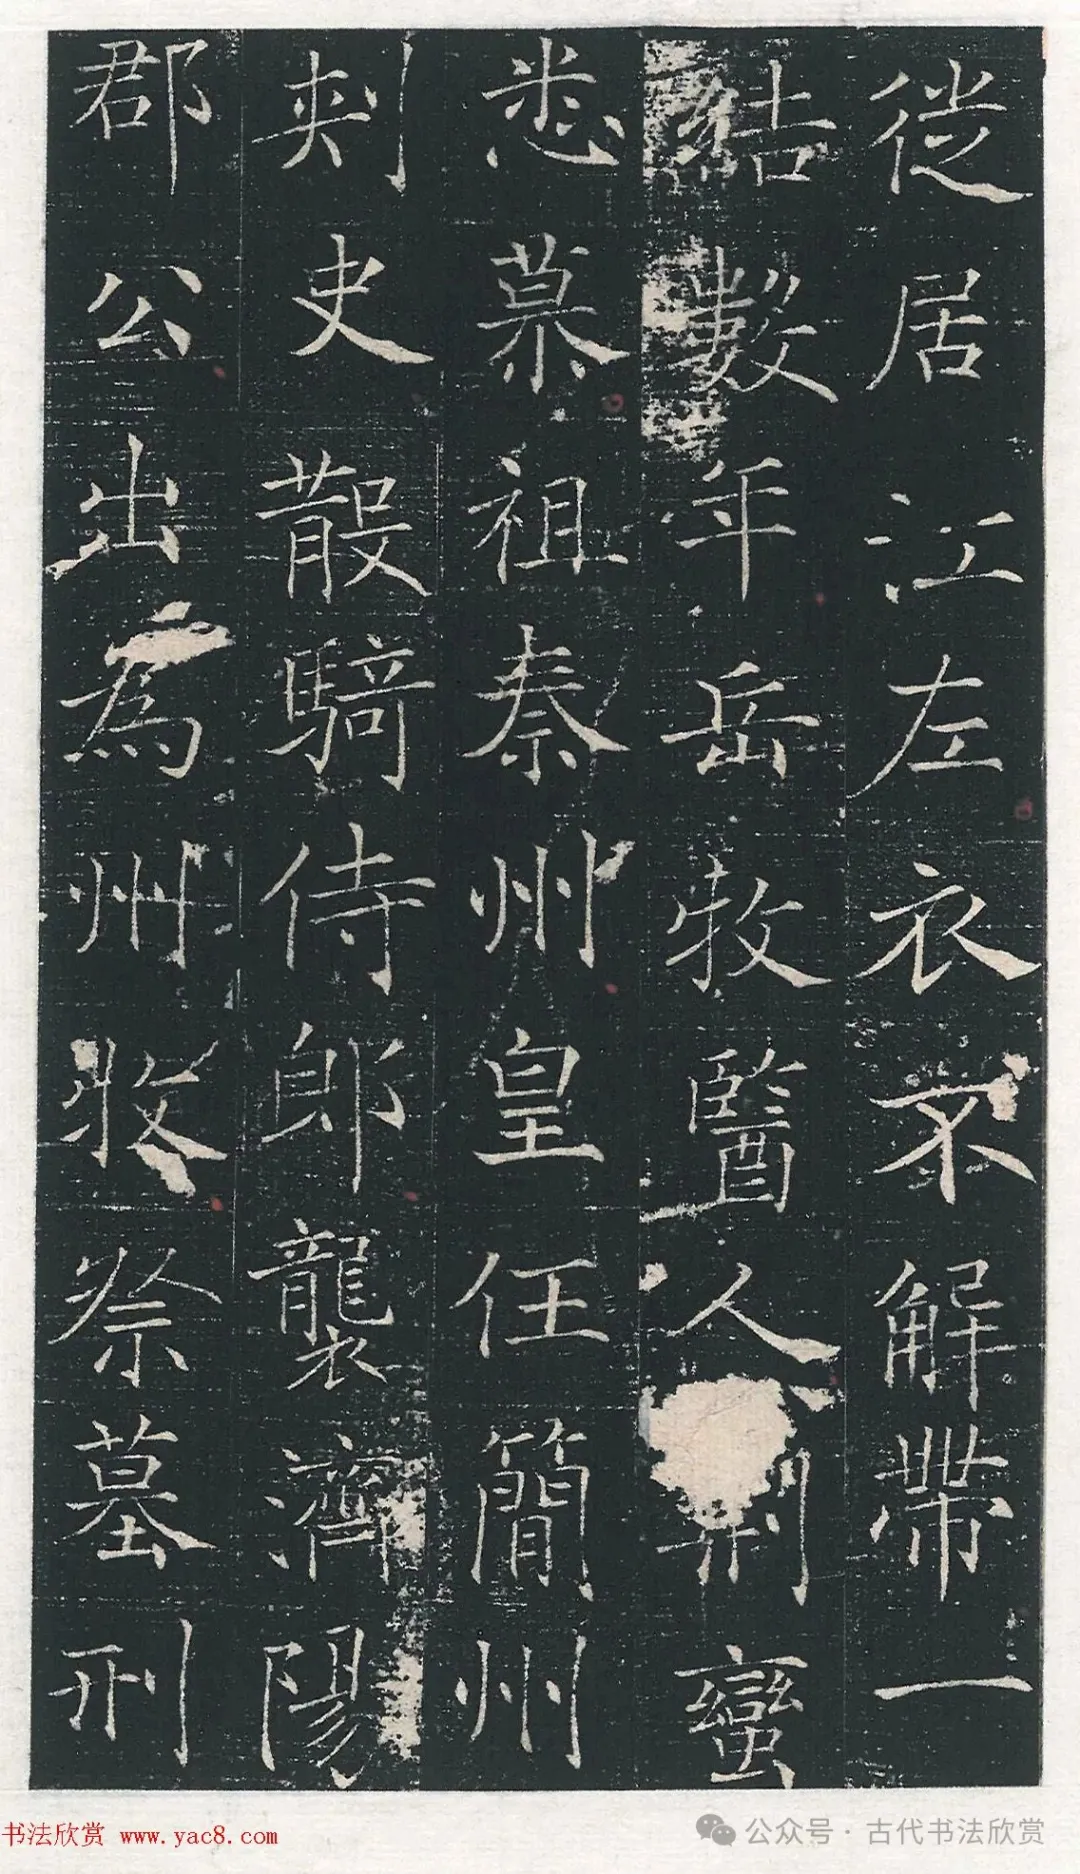 徙居江左衣不解帶一
結數年岳牧毉人荆蠻
悉慕祖秦州皇任簡州
刺史散騎侍郎襲濟陽
郡公出為州牧祭墓刑
书法欣赏 www.yac8.com
公众号·古代书法欣赏